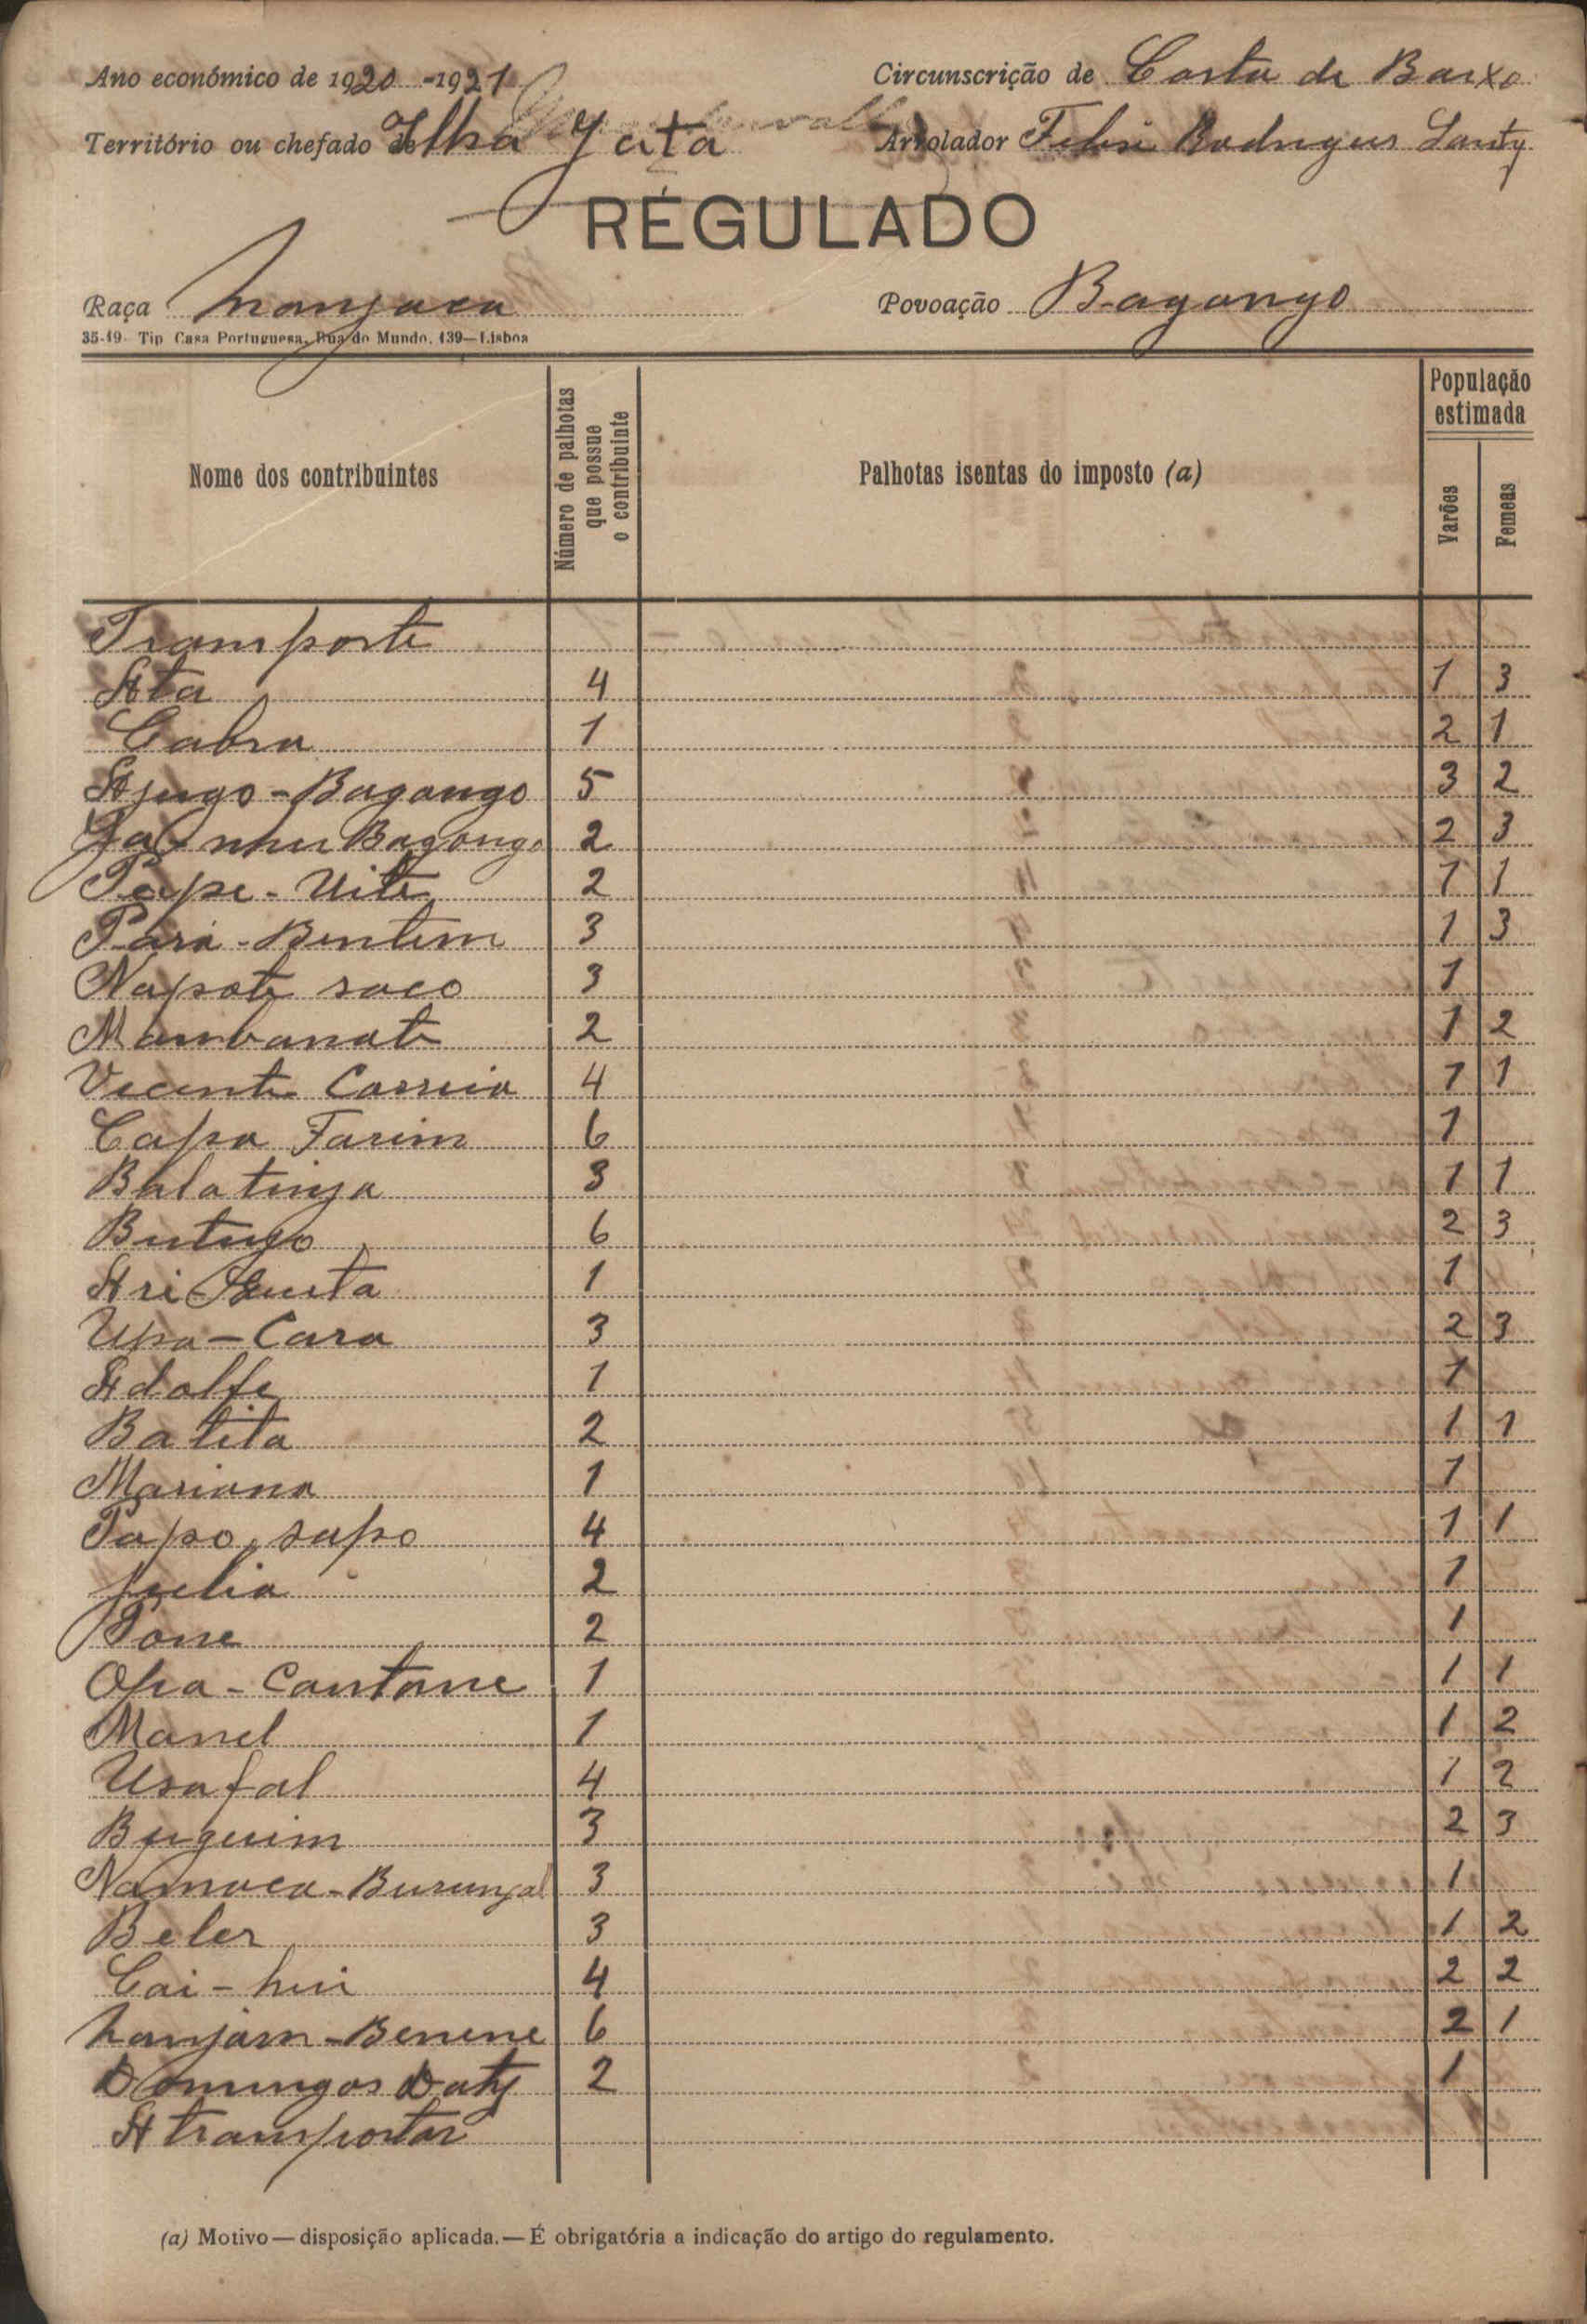 Ano económico de 1920-1921 Circunscrição de Costa de Baixo
Território ou chefado de Ilha Jata Arrolador Felix Rodrigues Santy
RÉGULADO
Raça Manjaca Povoação Bagango
35-19- Tip Casa Portuguesa, Rua do Mundo, 139—Lisboa
Nome dos contribuintes
Número de palhotas que possue o contribuinte
Palhotas isentas do imposto (a)
População estimada
Varões
Femeas
Transporte
Ata 4 1 3
Cabra 1 2 1
Ajugo-Bagango 5 3 2
Bagango 2 2 3
Pepe-Uite 2 1 1
Pará-Bentem 3 1 3
Napote saco 3 1
Mambanate 2 1 2
Vicente Correia 4 1 1
Capa Farim 6 1
Balatinja 3 1 1
Butugo 6 2 3
Ari 1 1
Upa-Cara 3 2 3
Adolfe 1 1
Batita 2 1 1
Mariana 1 1
Papo, sapo 4 1 1
Julia 2 1
Pone 2 1
Opa-Cantone 1 1 1
Manel 1 1 2
Usafal 4 1 2
Buguim 3 2 3
Namoca-Burungal 3 1
Beler 3 1 2
Cai-hui 4 2 2
Lanjam-Benene 6 2 1
Domingos Daty 2 1
A transportar
(a) Motivo—disposição aplicada.—É obrigatória a indicação do artigo do regulamento.